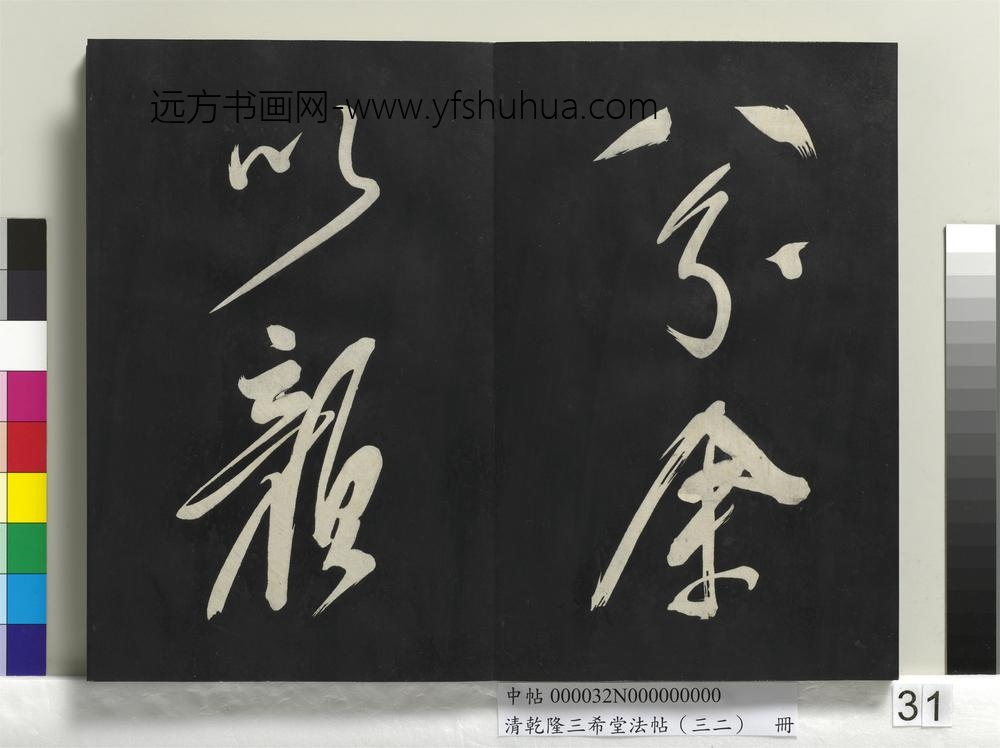 远方书画网-www.yfshuhua.com
余
以
中帖 000032N000000000
清乾隆三希堂法帖（三二） 冊
31